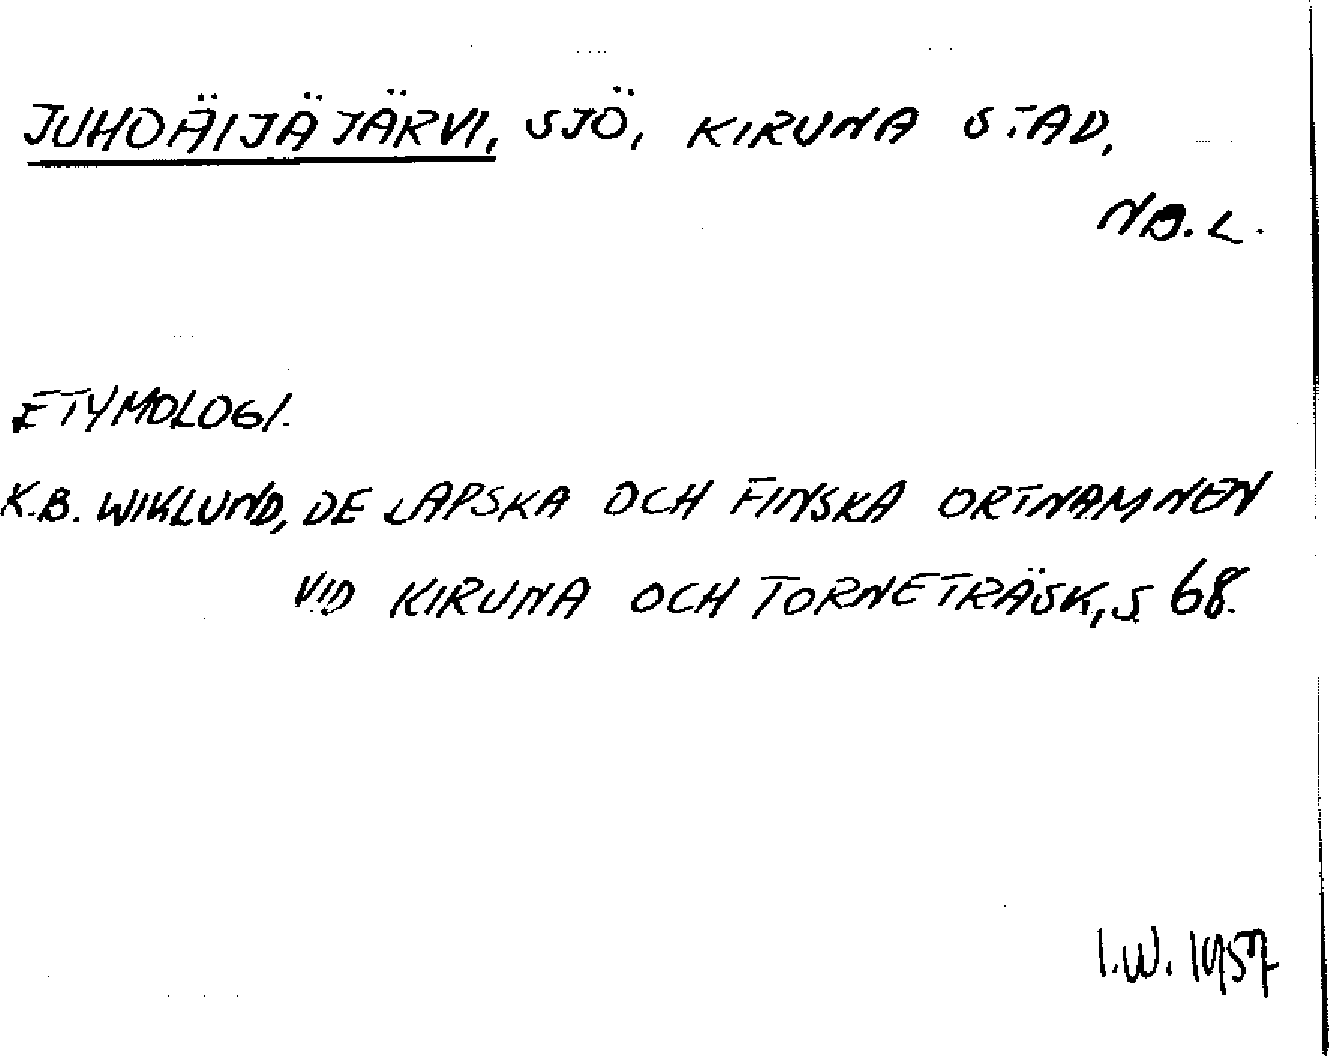 JUHOÄIJÄJÄRVI, SJÖ, KIRUNA STAD,
NB.L.
ETYMOLOGI.
K.B. WIKLUND, DE LAPSKA OCH FINSKA ORTNAMNEN
VID KIRUNA OCH TORNETRÄSK, S 68.
I.W. 1957